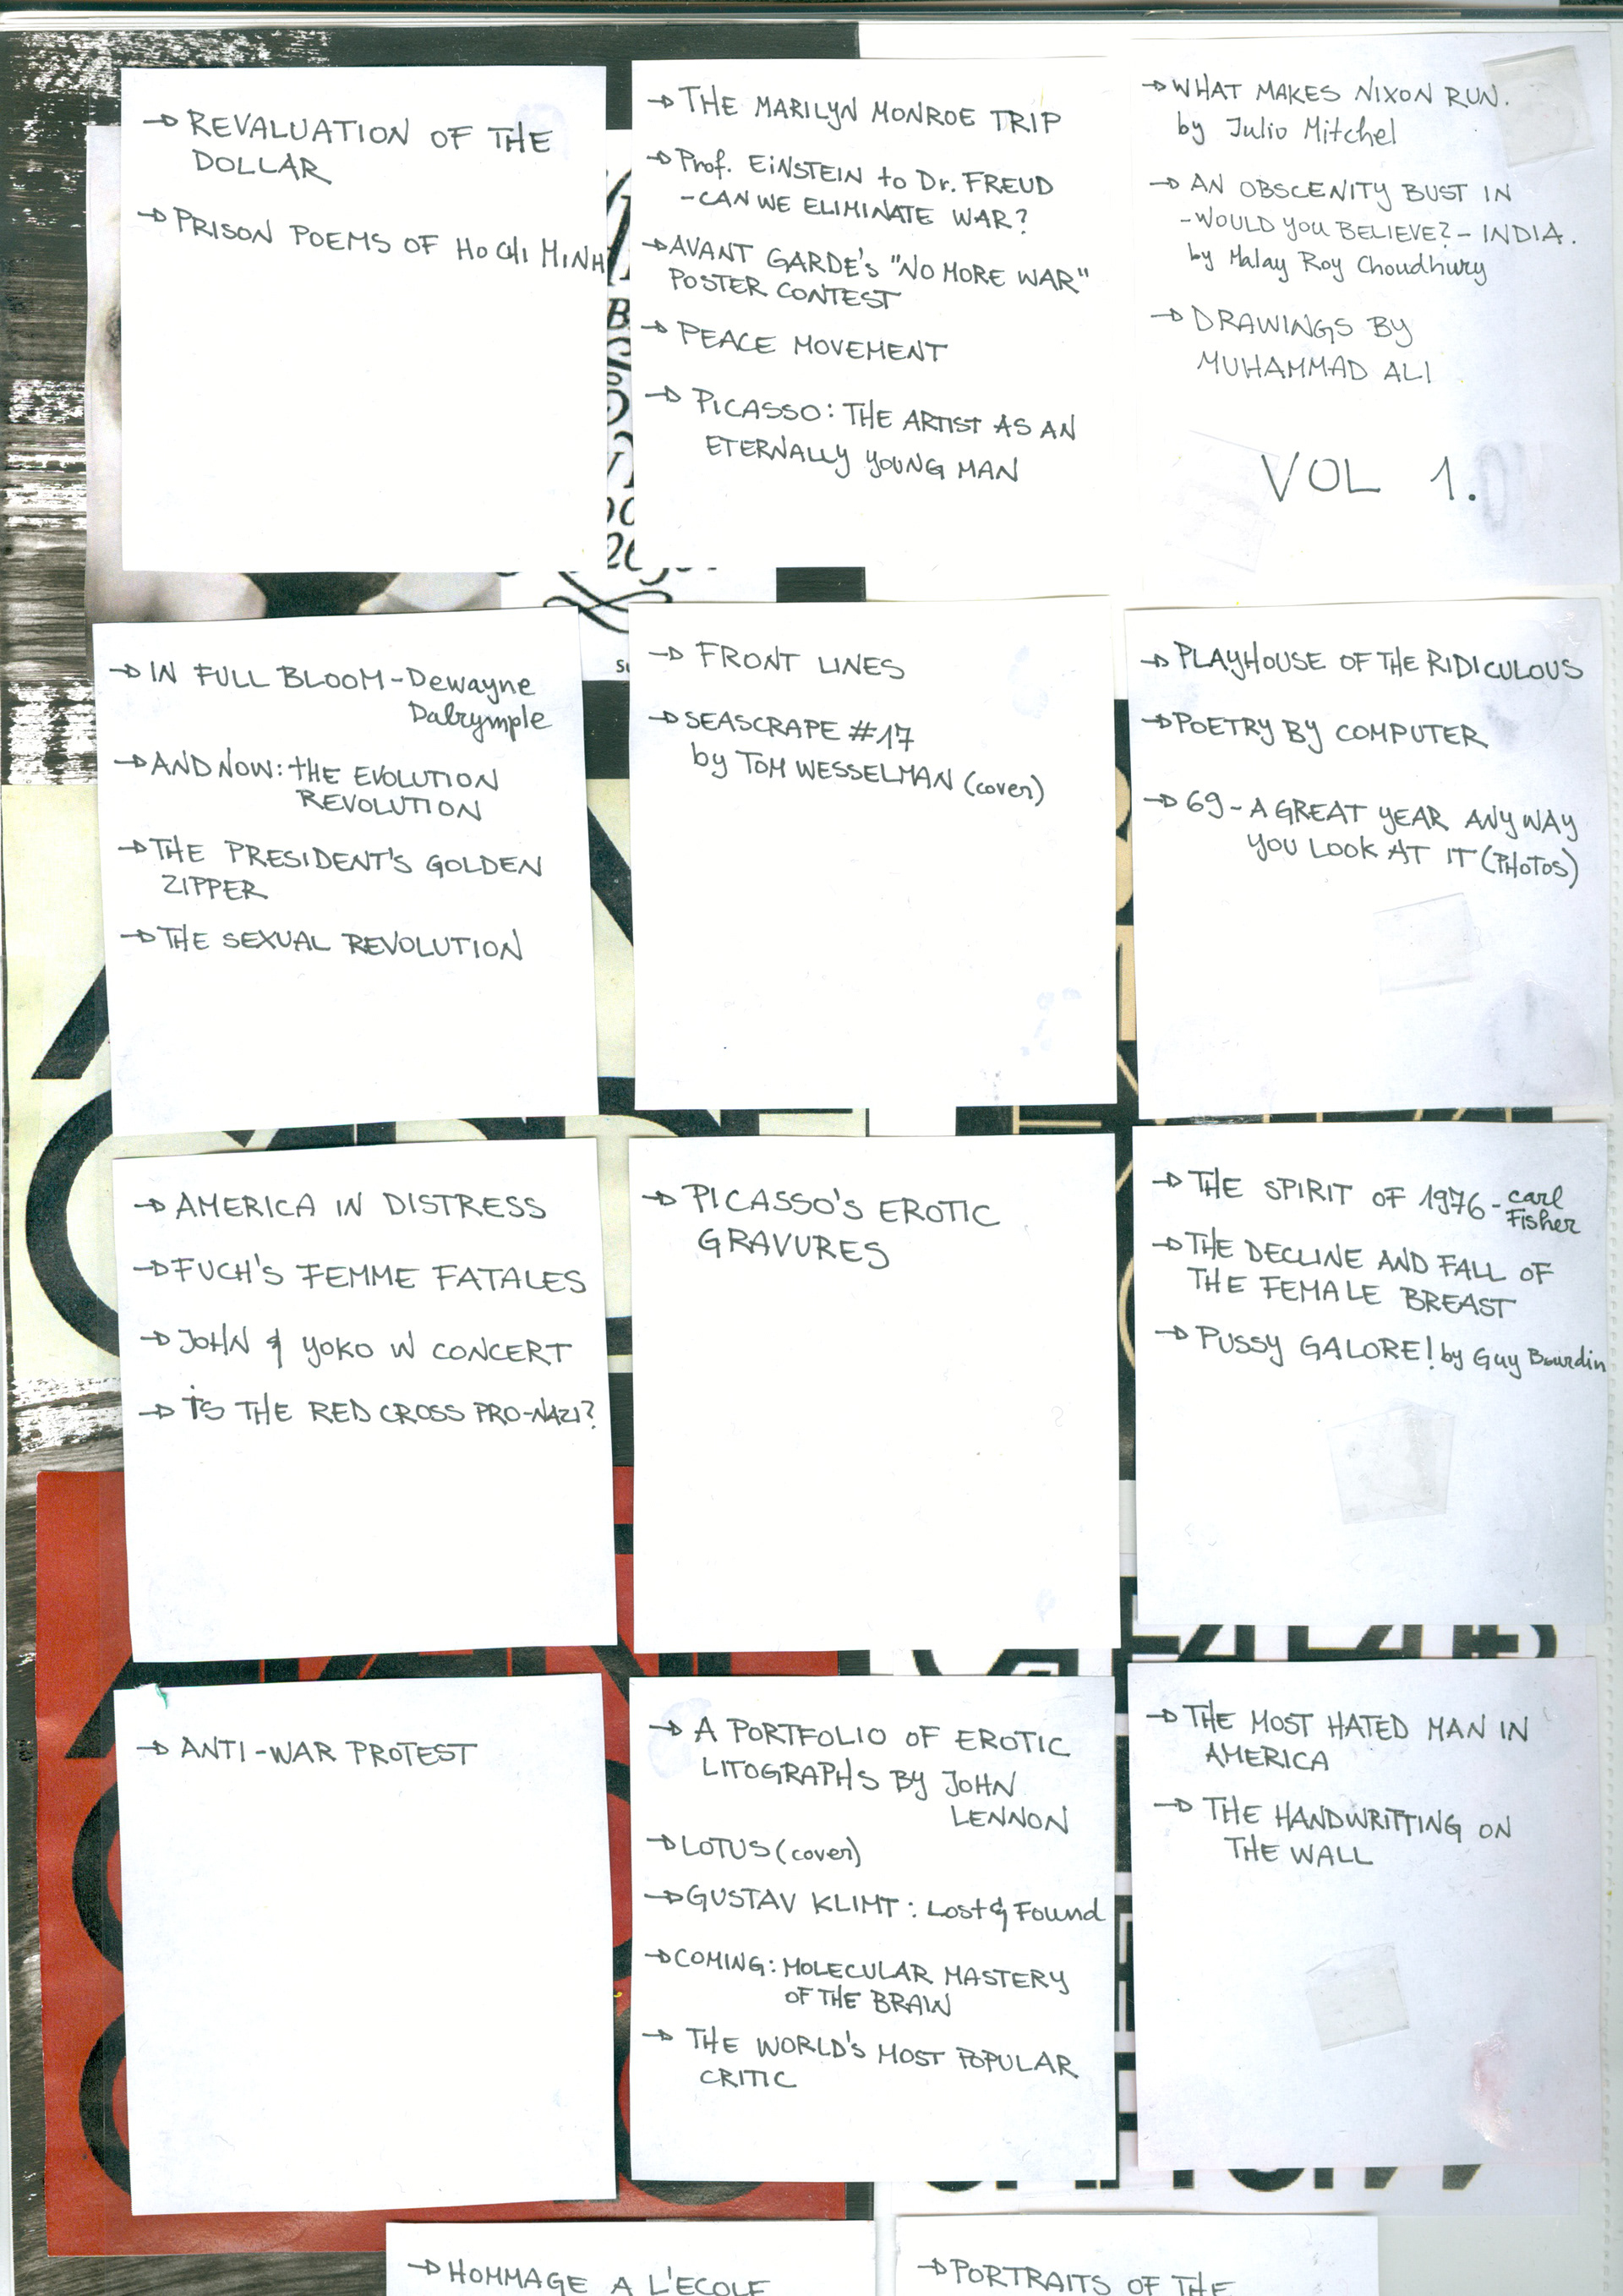 → REVALUATION OF THE
DOLLAR
→ PRISON POEMS OF HO CHI MINH
→ THE MARILYN MONROE TRIP
→ Prof. EINSTEIN to Dr. FREUD
- CAN WE ELIMINATE WAR?
→ AVANT GARDE'S "NO MORE WAR"
POSTER CONTEST
→ PEACE MOVEMENT
→ PICASSO: THE ARTIST AS AN
ETERNALLY YOUNG MAN
→ WHAT MAKES NIXON RUN.
by Julio Mitchel
→ AN OBSCENITY BUST IN
- WOULD YOU BELIEVE? - INDIA.
by Malay Roy Choudhury
→ DRAWINGS BY
MUHAMMAD ALI
VOL 1.
→ IN FULL BLOOM - Dewayne
Dalrymple
→ AND NOW: THE EVOLUTION
REVOLUTION
→ THE PRESIDENT'S GOLDEN
ZIPPER
→ THE SEXUAL REVOLUTION
→ FRONT LINES
→ SEASCRAPE #17
by TOM WESSELMAN (cover)
→ PLAYHOUSE OF THE RIDICULOUS
→ POETRY BY COMPUTER
→ 69 - A GREAT YEAR ANY WAY
YOU LOOK AT IT (PHOTOS)
→ AMERICA IN DISTRESS
→ FUCH'S FEMME FATALES
→ JOHN & YOKO IN CONCERT
→ IS THE RED CROSS PRO-NAZI?
→ PICASSO'S EROTIC
GRAVURES
→ THE SPIRIT OF 1976 - Carl
Fisher
→ THE DECLINE AND FALL OF
THE FEMALE BREAST
→ PUSSY GALORE! by Guy Bourdin
→ ANTI-WAR PROTEST
→ A PORTFOLIO OF EROTIC
LITOGRAPHS BY JOHN
LENNON
→ LOTUS (cover)
→ GUSTAV KLIMT: Lost & Found
→ COMING: MOLECULAR MASTERY
OF THE BRAIN
→ THE WORLD'S MOST POPULAR
CRITIC
→ THE MOST HATED MAN IN
AMERICA
→ THE HANDWRITTING ON
THE WALL
→ HOMMAGE A L'ECOLE
→ PORTRAITS OF THE